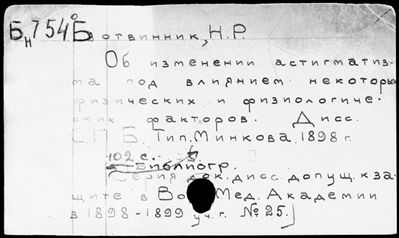 Бн 754° Ботвинник, Н.Р.
Об изменении астигматиз-
ма под влиянием некоторых
физических и физиологиче-
ских факторов. Дисс.
С.П.Б. Тип. Минкова, 1898 г.
102 с.
Библиогр.
(Серия док. дисс. допущ. к за-
щите в Во Мед. Академии
в 1898-1899 уч. г. № 25.)